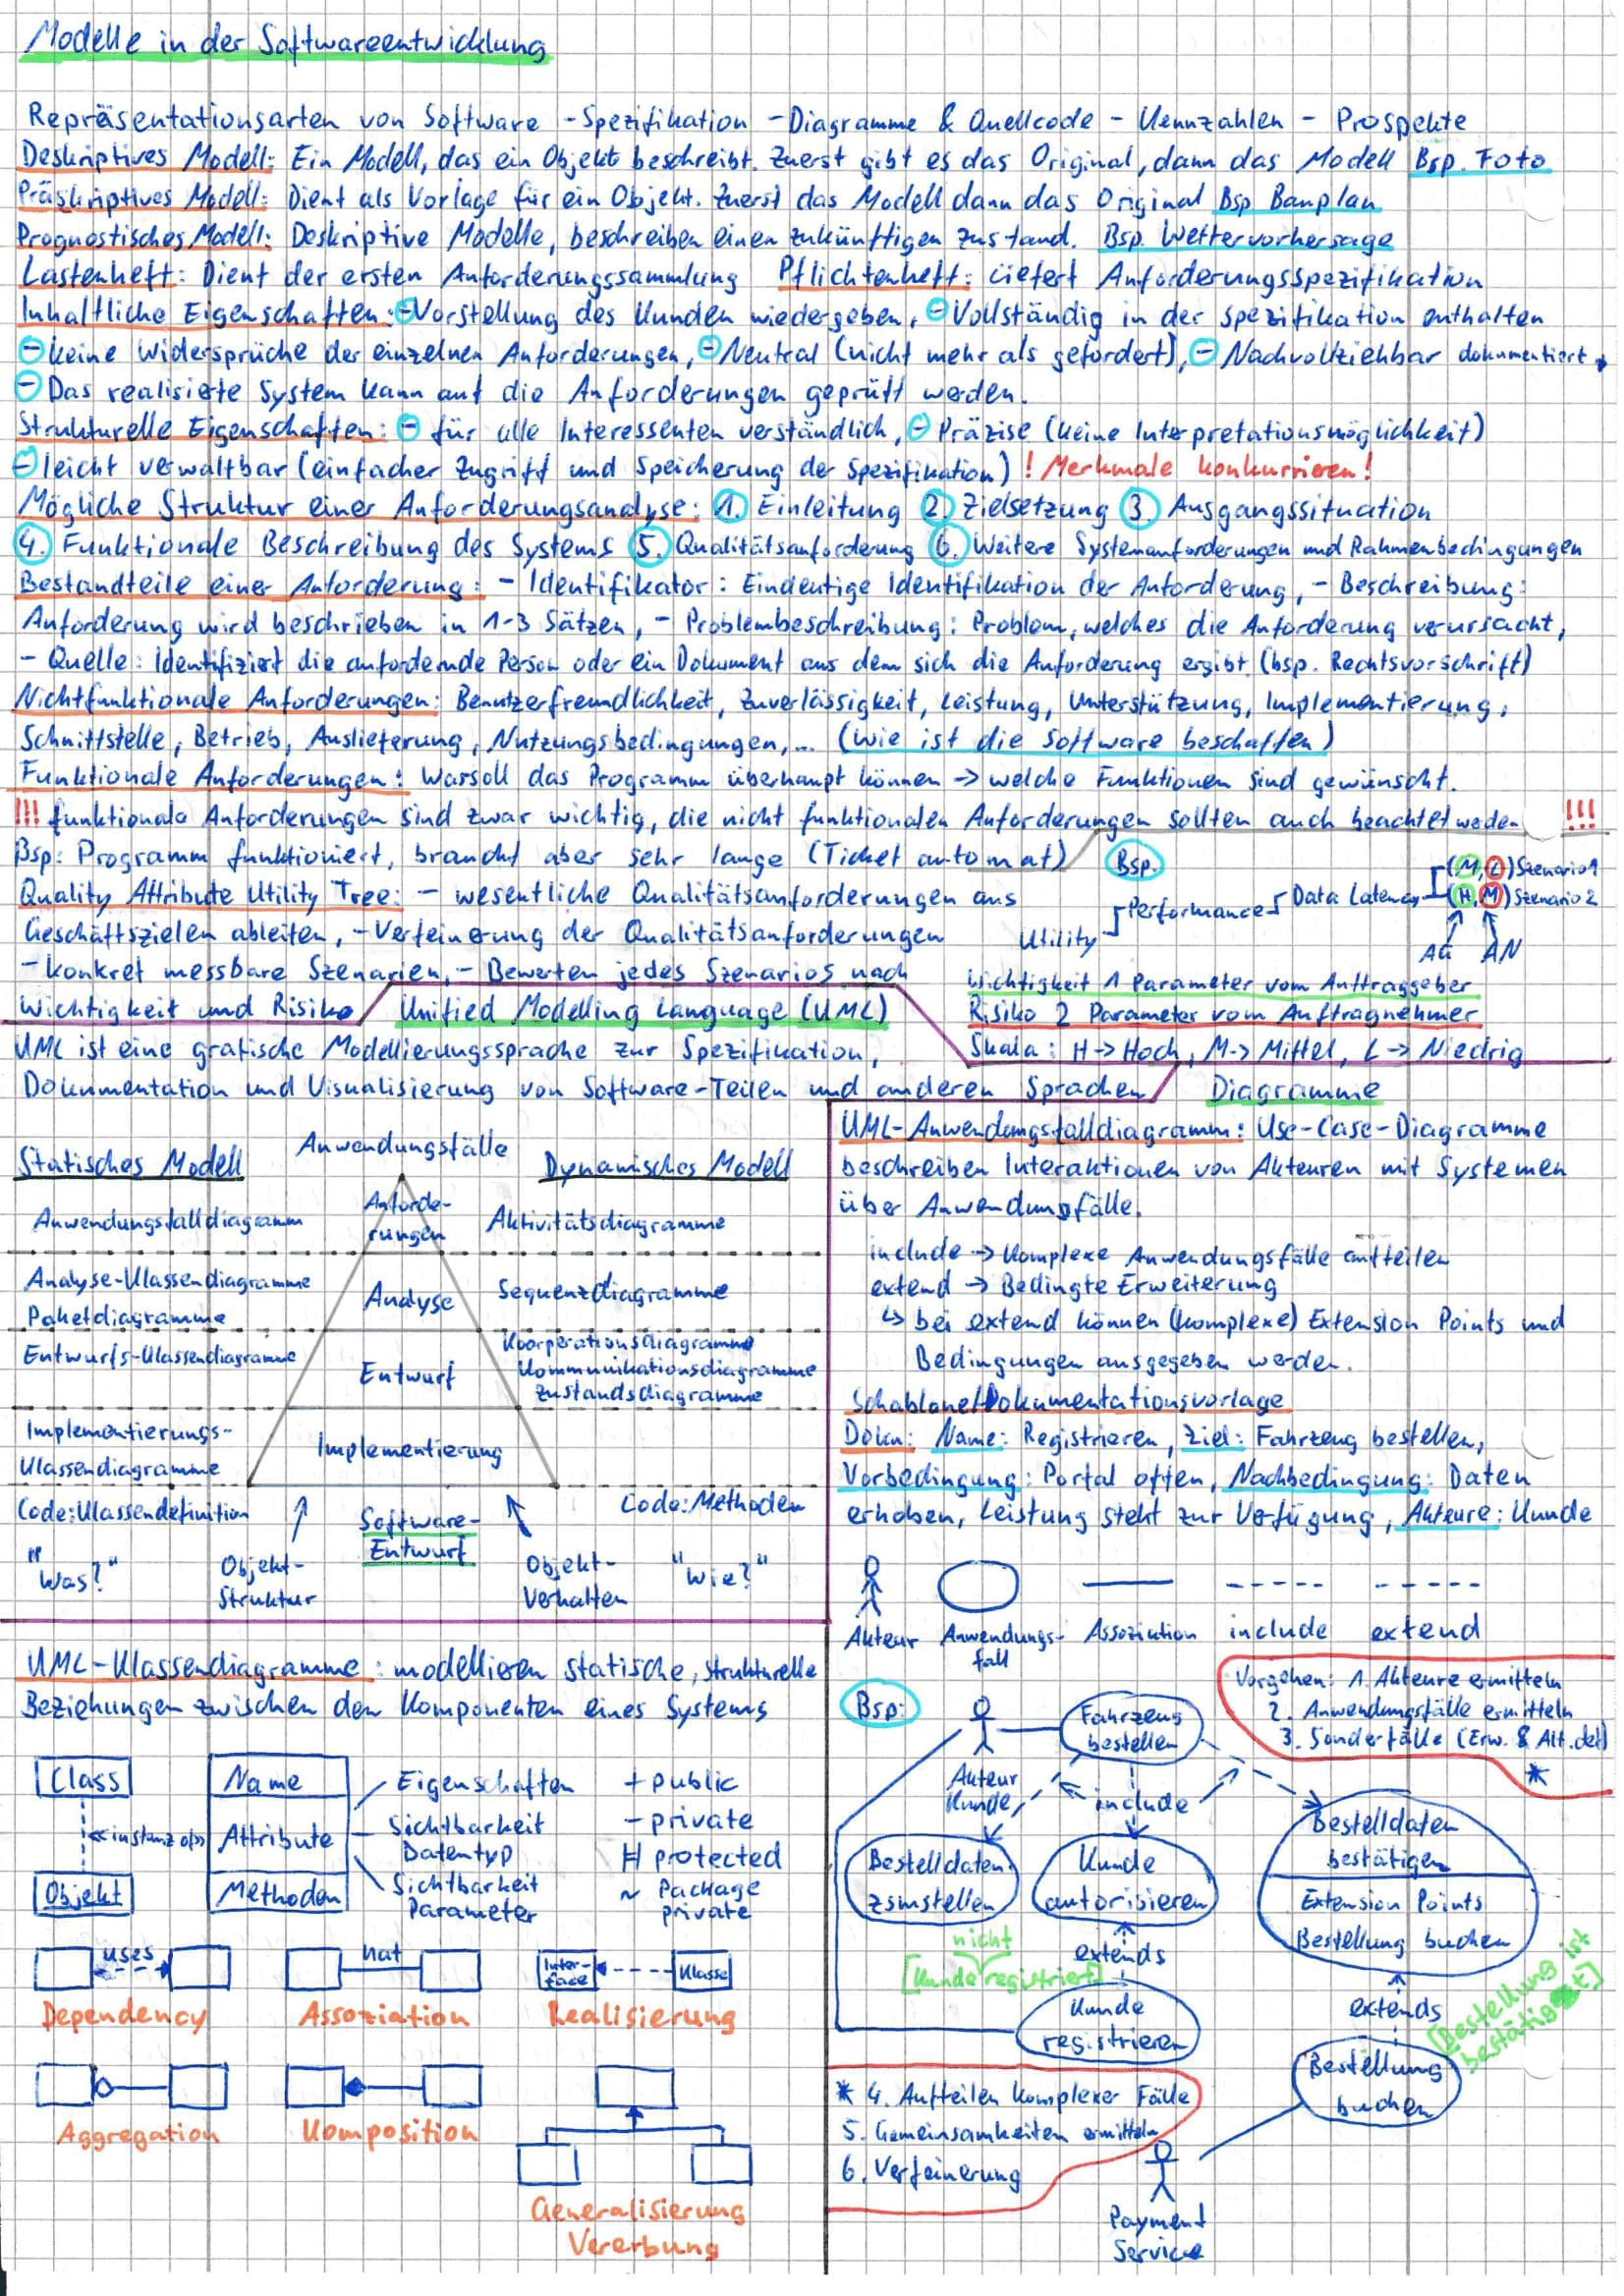 Modelle in der Softwareentwicklung
Repräsentationsarten von Software - Spezifikation - Diagramme & Quellcode - Kennzahlen - Prospekte
Deskriptives Modell: Ein Modell, das ein Objekt beschreibt. Zuerst gibt es das Original, dann das Modell Bsp. Foto
Präskriptives Modell: Dient als Vorlage für ein Objekt. Zuerst das Modell dann das Original Bsp Bauplan
Prognostisches Modell: Deskriptive Modelle, beschreiben einen zukünftigen Zustand. Bsp. Wettervorhersage
Lastenheft: Dient der ersten Anforderungssammlung Pflichtenheft: Liefert Anforderungsspezifikation
Inhaltliche Eigenschaften: - Vorstellung des Kunden wiedergeben, - Vollständig in der Spezifikation enthalten
- keine Widersprüche der einzelnen Anforderungen, - Neutral (nicht mehr als gefordert), - Nachvollziehbar dokumentiert,
- Das realisierte System kann auf die Anforderungen geprüft werden.
Strukturelle Eigenschaften: - für alle Interessenten verständlich, - Präzise (keine Interpretationsmöglichkeit)
- leicht verwaltbar (einfacher Zugriff und Speicherung der Spezifikation) ! Merkmale konkurrieren!
Mögliche Struktur einer Anforderungsanalyse: 1. Einleitung 2. Zielsetzung 3. Ausgangssituation
4. Funktionale Beschreibung des Systems 5. Qualitätsanforderung 6. Weitere Systemanforderungen und Rahmenbedingungen
Bestandteile einer Anforderung: - Identifikator: Eindeutige Identifikation der Anforderung, - Beschreibung:
Anforderung wird beschrieben in 1-3 Sätzen, - Problembeschreibung: Problem, welches die Anforderung verursacht,
- Quelle: Identifiziert die anfordernde Person oder ein Dokument aus dem sich die Anforderung ergibt (bsp. Rechtsvorschrift)
Nichtfunktionale Anforderungen: Benutzerfreundlichkeit, Zuverlässigkeit, Leistung, Unterstützung, Implementierung,
Schnittstelle, Betrieb, Auslieferung, Nutzungsbedingungen,... (Wie ist die Software beschaffen)
Funktionale Anforderungen: Was soll das Programm überhaupt können -> welche Funktionen sind gewünscht.
!!! funktionale Anforderungen sind zwar wichtig, die nicht funktionalen Anforderungen sollten auch beachtet weden !!!
Bsp: Programm funktioniert, braucht aber sehr lange (Ticket automat)
Quality Attribute Utility Tree: - wesentliche Qualitätsanforderungen aus
Geschäftszielen ableiten, - Verfeinerung der Qualitätsanforderungen
- konkret messbare Szenarien, - Bewerten jedes Szenarios nach
Wichtigkeit und Risiko
Bsp.
Utility Performance Data Latency (M, L) Szenario 1
(H, M) Szenario 2
AG AN
Wichtigkeit 1 Parameter vom Auftraggeber
Risiko 2 Parameter vom Auftragnehmer
Skala: H -> Hoch, M -> Mittel, L -> Niedrig
Unified Modelling Language (UML)
UML ist eine grafische Modellierungssprache zur Spezifikation,
Dokumentation und Visualisierung von Software-Teilen und anderen Sprachen
Anwendungsfälle
Statisches Modell Dynamisches Modell
Anwendungsfalldiagramm Anforde-rungen Aktivitätsdiagramme
Analyse-Klassendiagramme Analyse Sequenzdiagramme
Paketdiagramme
Entwurfs-Klassendiagramme Entwurf Koorperationsdiagramme
Kommunikationsdiagramme
Zustandsdiagramme
Implementierungs- Implementierung
Klassendiagramme
Code: Klassendefinition Software-Entwurf Code: Methoden
"Was?" Objekt-Struktur Objekt-Verhalten "Wie?"
Diagramme
UML-Anwendungsfalldiagramm: Use-Case-Diagramme
beschreiben Interaktionen von Akteuren mit Systemen
über Anwendungsfälle.
include -> Komplexe Anwendungsfälle aufteilen
extend -> Bedingte Erweiterung
↳ bei extend können (komplexe) Extension Points und
Bedingungen ausgegeben werden.
Schablone/Dokumentationsvorlage
Doku: Name: Registrieren, Ziel: Fahrzeug bestellen,
Vorbedingung: Portal offen, Nachbedingung: Daten
erhoben, Leistung steht zur Verfügung, Akteure: Kunde
Akteur Anwendungs-fall Assoziation include extend
Vorgehen: 1. Akteure ermitteln
2. Anwendungsfälle ermitteln
3. Sonderfälle (Erw. & Alt. def)
*
Bsp:
Akteur
Kunde
Fahrzeug
bestellen
include
Bestelldaten
zsmstellen
Kunde
autorisieren
Bestelldaten
bestätigen
Extension Points
Bestellung buchen
extends
[Kunde nicht registriert]
Kunde
registrieren
extends
[Bestellung ist
bestätigt]
Bestellung
buchen
* 4. Aufteilen komplexer Fälle
5. Gemeinsamkeiten ermitteln
6. Verfeinerung
Payment
Service
UML-Klassendiagramme: modellieren statische, strukturelle
Beziehungen zwischen den Komponenten eines Systems
Class
<<instanz of>>
Objekt
Name
Attribute
Methoden
Eigenschaften
Sichtbarkeit
Datentyp
Sichtbarkeit
Parameter
+ public
- private
# protected
~ Package
private
uses
Dependency
hat
Assoziation
Inter-face Klasse
Realisierung
Aggregation
Komposition
Generalisierung
Vererbung